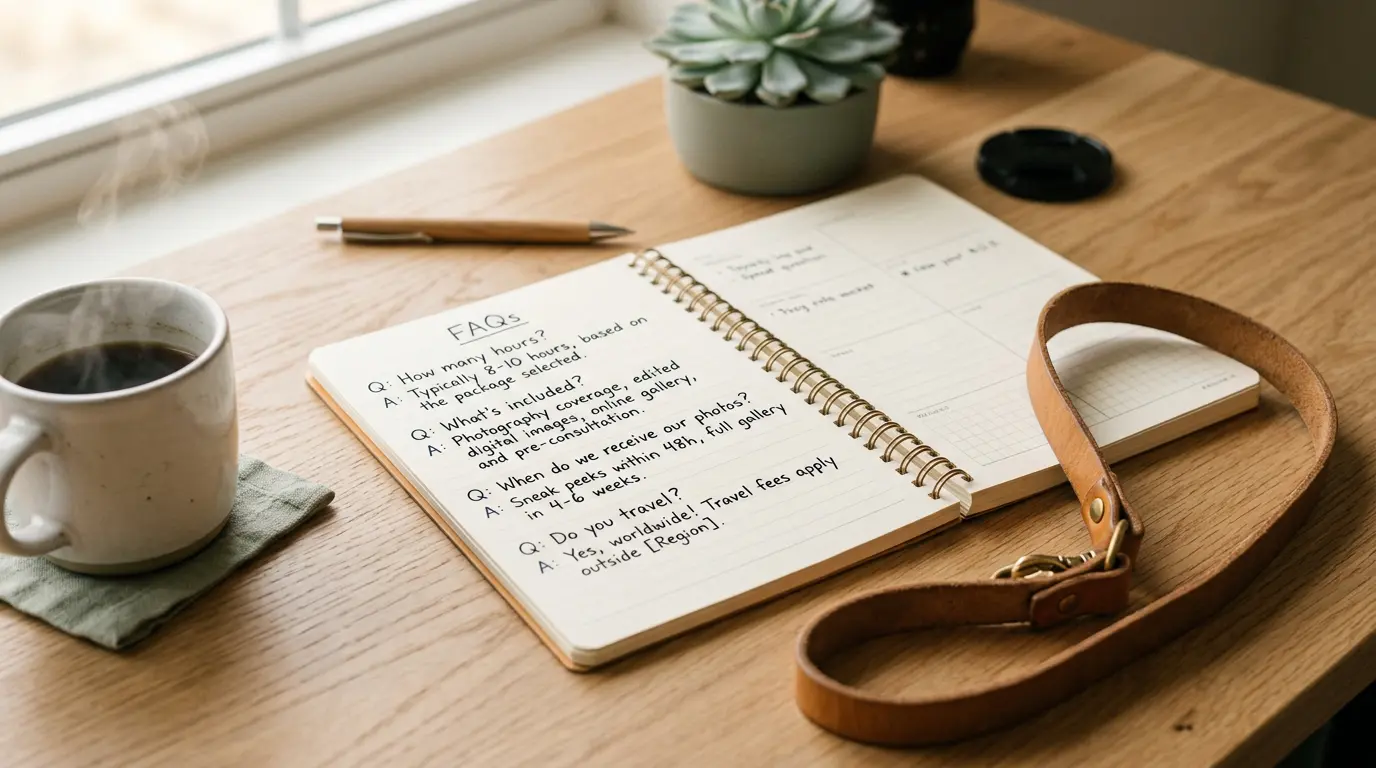 FAQs
Q: How many hours?
A: Typically 8-10 hours, based on
the package selected.
Q: What's included?
A: Photography coverage, edited
digital images, online gallery,
and pre-consultation.
Q: When do we receive our photos?
A: Sneak peeks within 48h, full gallery
in 4-6 weeks.
Q: Do you travel?
A: Yes, worldwide! Travel fees apply
outside [Region].